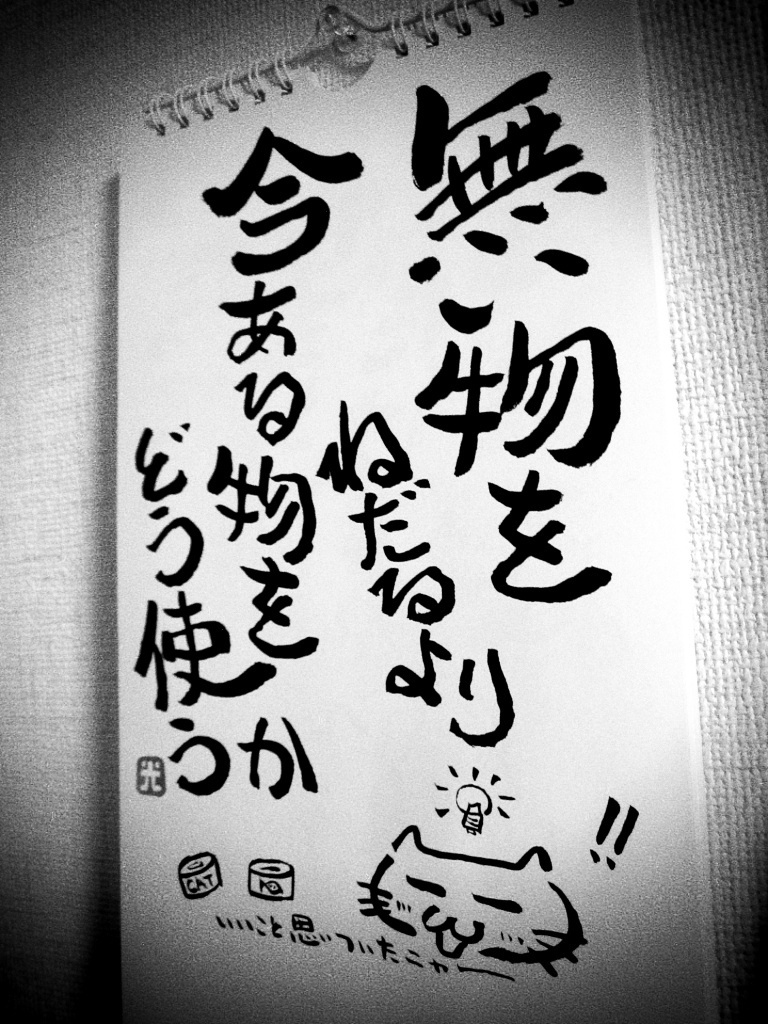 無い物を
ねだるより
今ある物を
どう使うか
光
!!
CAT
いいこと思いついたニャー